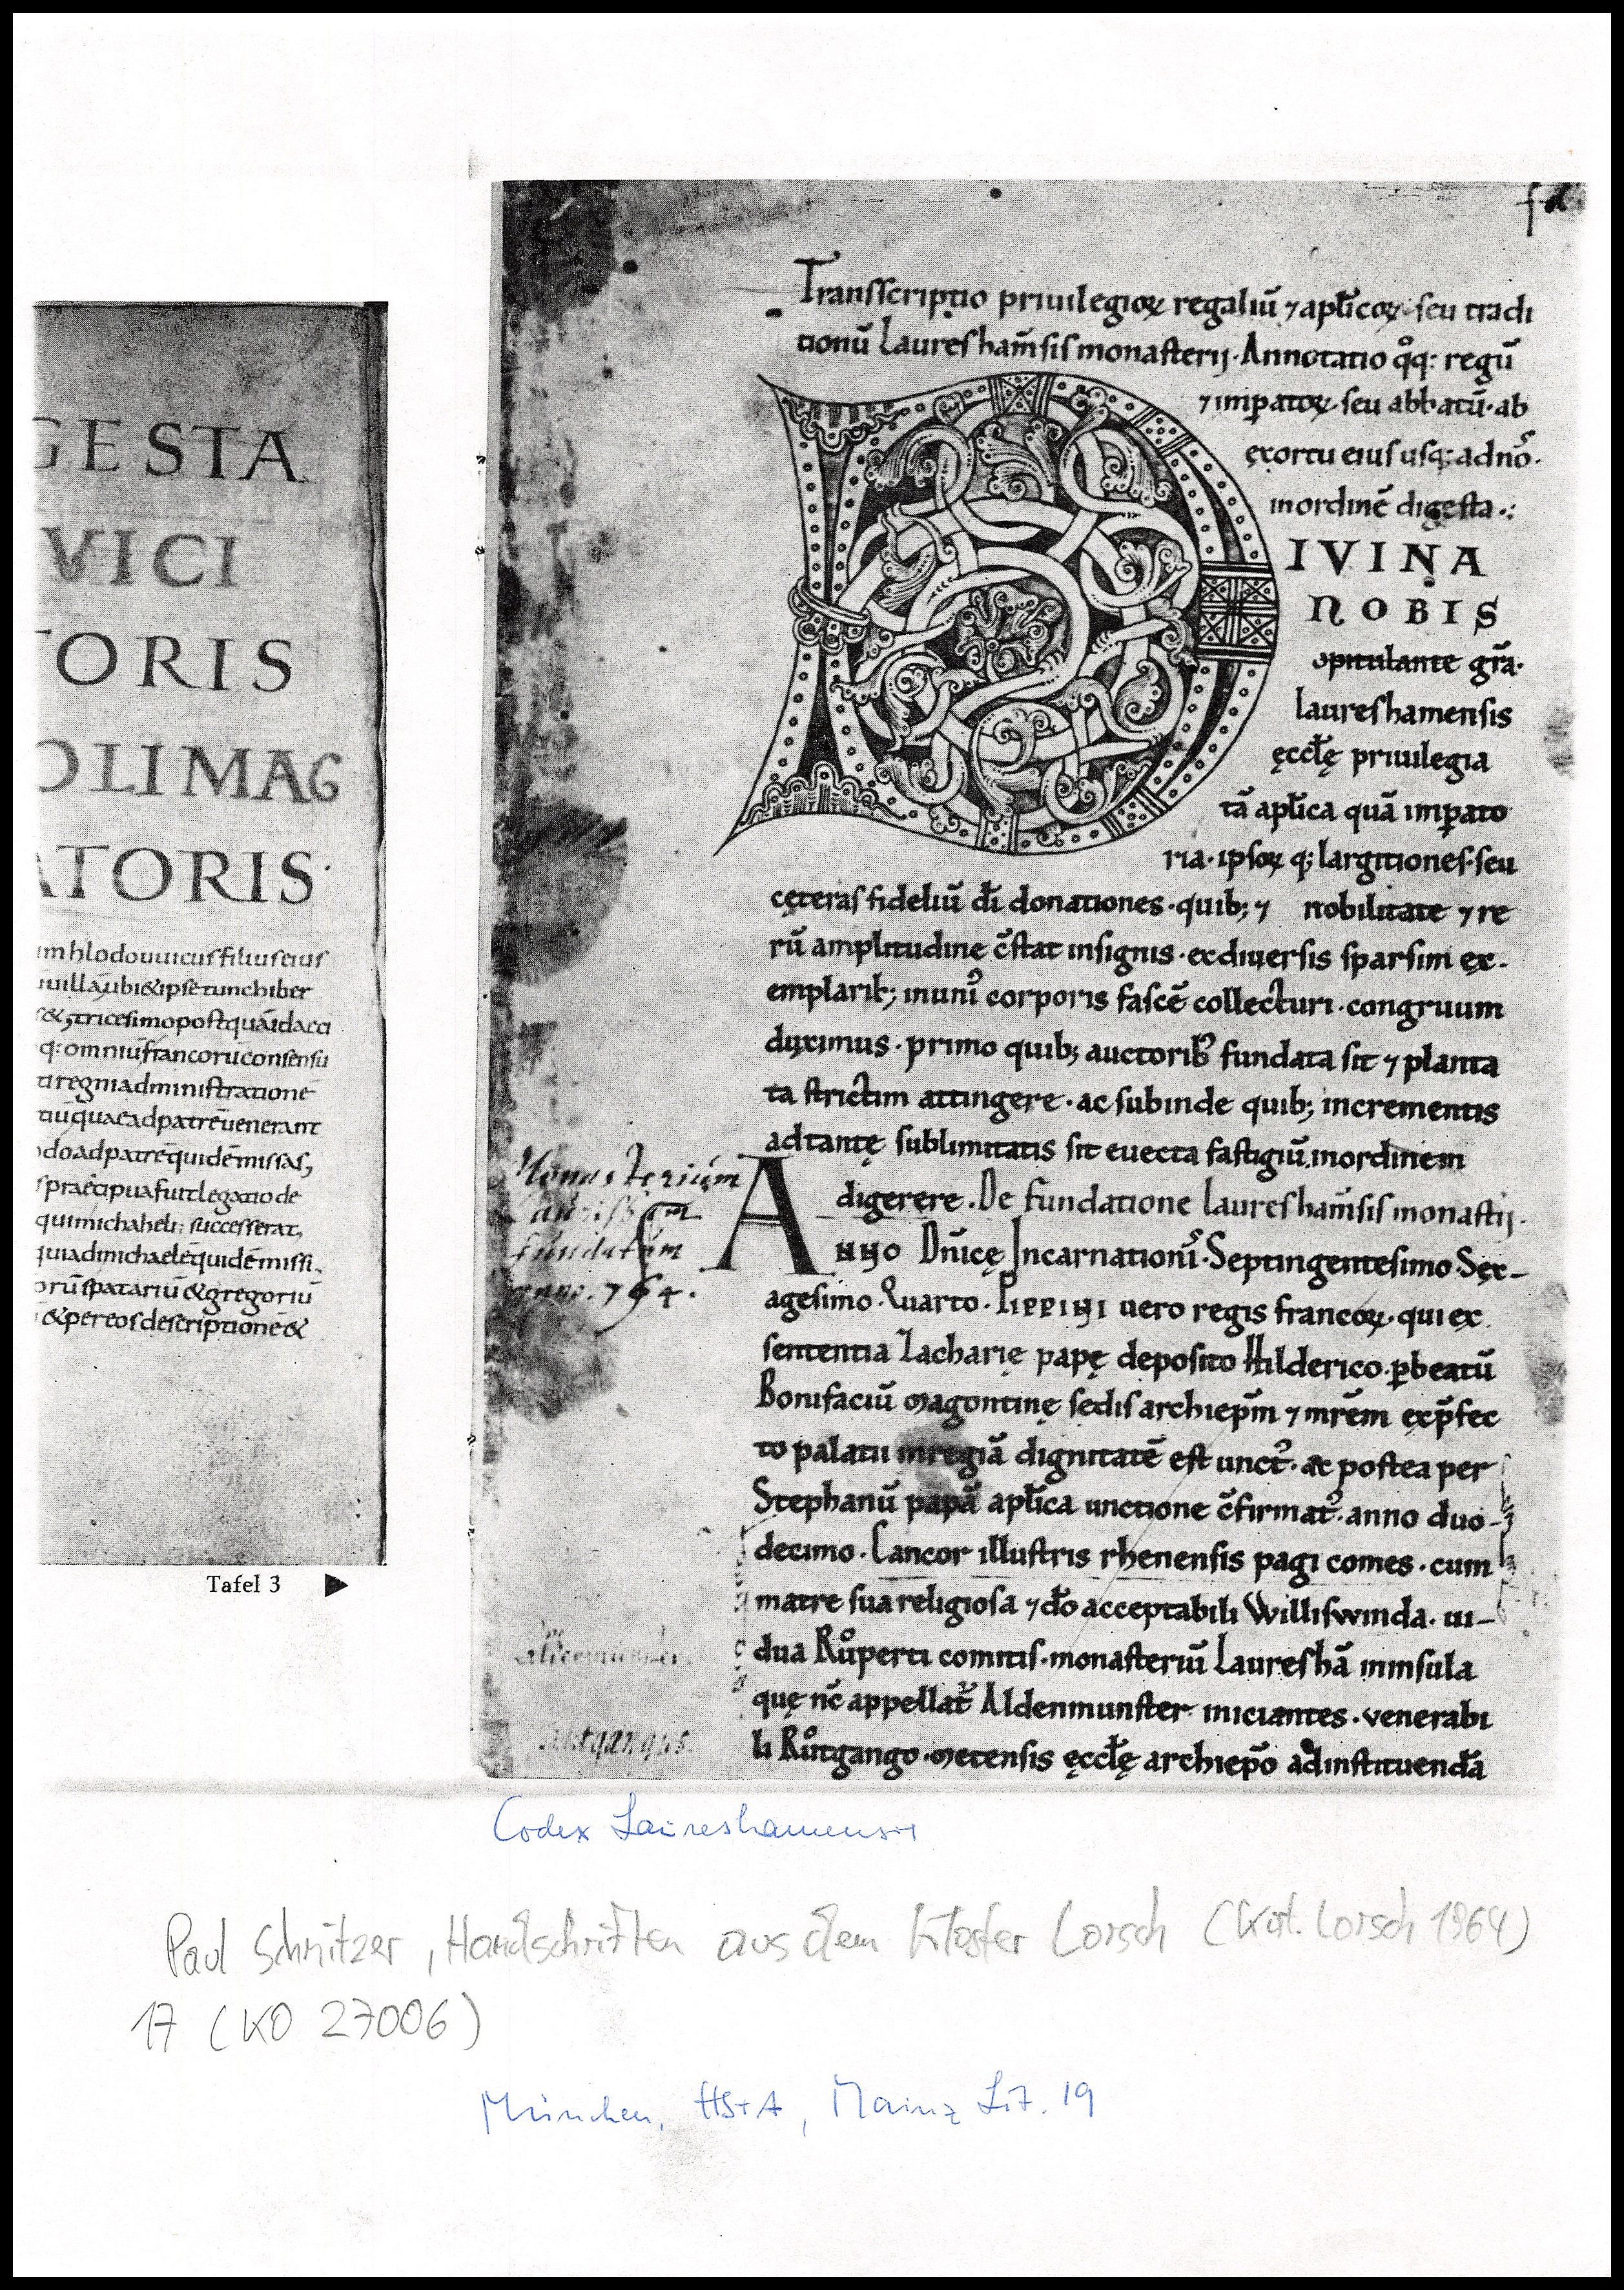 GESTA
VICI
TORIS
OLIMAG
ATORIS·
mhlodouuicusfiliuseius
uillāubi&ipsetunchiber
&tricesimopostquāidacci
q: omniūfrancorūconsensu
tiregniadministratione
tiūquaeadpatrēuenerant
doadpatrēquidēmissas,
spraecipuafuitlegatiode
quimichaheli: successerat,
quiadmichaelēquidēmissi.
orūspatariū&gregoriū
&pereosdescriptione&
Tafel 3
Transscriptio priuilegioꝝ regaliū ⁊ aplicoꝝ· seu tradi
tionū Laureshāmsis monasterij· Annotatio qͦq: regū
⁊ imꝑatoꝝ· seu abbatū· ab
exortu eius usq; ad nō·
in ordinē digesta·:
DIVINA
NOBIS
opitulante grā·
laureshamensis
ęccłę priuilegia
tā aplica quā imꝑato
ria· ipsoꝝ q; largitiones· seu
cęteras fideliū dī donationes· quib; ⁊ nobilitate ⁊ re
rū amplitudine c̄stat insignis· ex diuersis sparsim ex·
emplarib; in unī corporis fascē collecturi· congruum
duximus· primo quib; auctorib᾽ fundata sit ⁊ planta
ta strictim attingere· ac subinde quib; incrementis
ad tantę sublimitatis sit euecta fastigiū, in ordinem
digerere. De fundatione laureshāmsis monastij·
Monasterium
fundatum
764.
ANNO Dn̄icę Incarnationī· Septingentesimo Sex-
agesimo Quarto· PIPPINI uero regis francoꝝ· qui ex
sententia Zacharię papę deposito Hilderico· ꝑ beatū
Bonifaciū Magontinę sedis archiepm̄ ⁊ mr̄em exp̄fec
to palatii in regiā dignitatē est unct᾽· ac postea per
Stephanū papā aplica unctione c̄firmat᾽· anno duo-
decimo· Cancor illustris rhenensis pagi comes· cum
matre sua religiosa ⁊ dō acceptabili Williswinda· ui-
dua Ruͦperti comitis· monasteriū Lauresħā in insula
quę nc̄ appellat᾽ Aldenmunster iniciantes· venerabi
li Ruͦtgango· Metensis ęccłę archiepō ad instituendā
Codex Laureshamensis
Paul Schnitzer, Handschriften aus dem Kloster Lorsch (Kat. Lorsch 1964)
17 (KO 27006)
München, HStA, Mainz Lit. 19